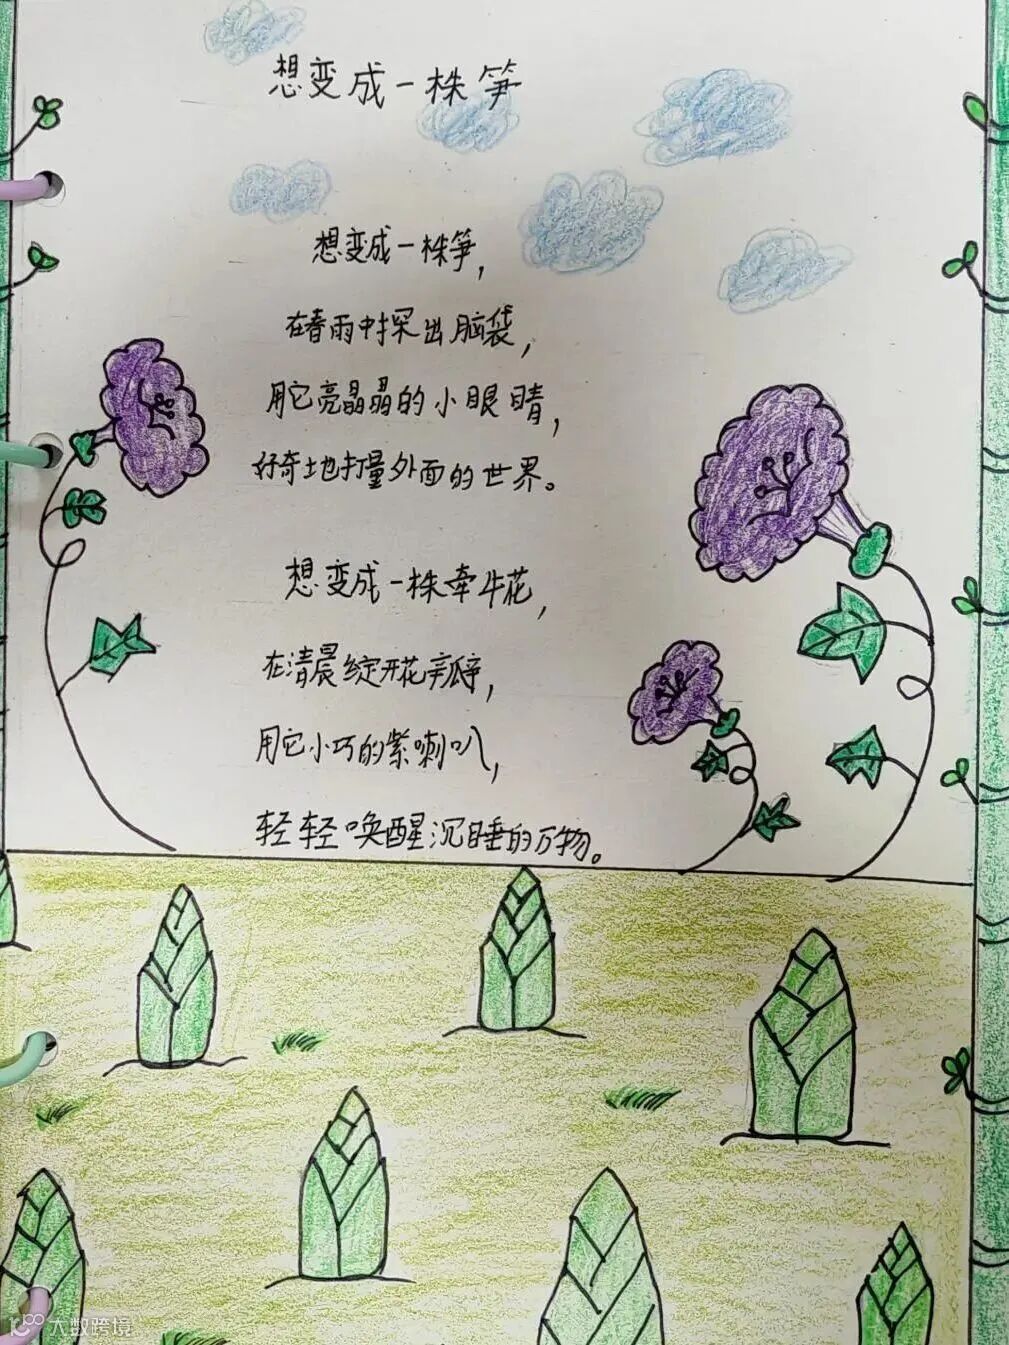 想变成一株笋
想变成一株笋,
在春雨中探出脑袋,
用它亮晶晶的小眼睛,
好奇地打量外面的世界。
想变成一株牵牛花,
在清晨绽开花瓣,
用它小巧的紫喇叭,
轻轻唤醒沉睡的万物。
大数跨境